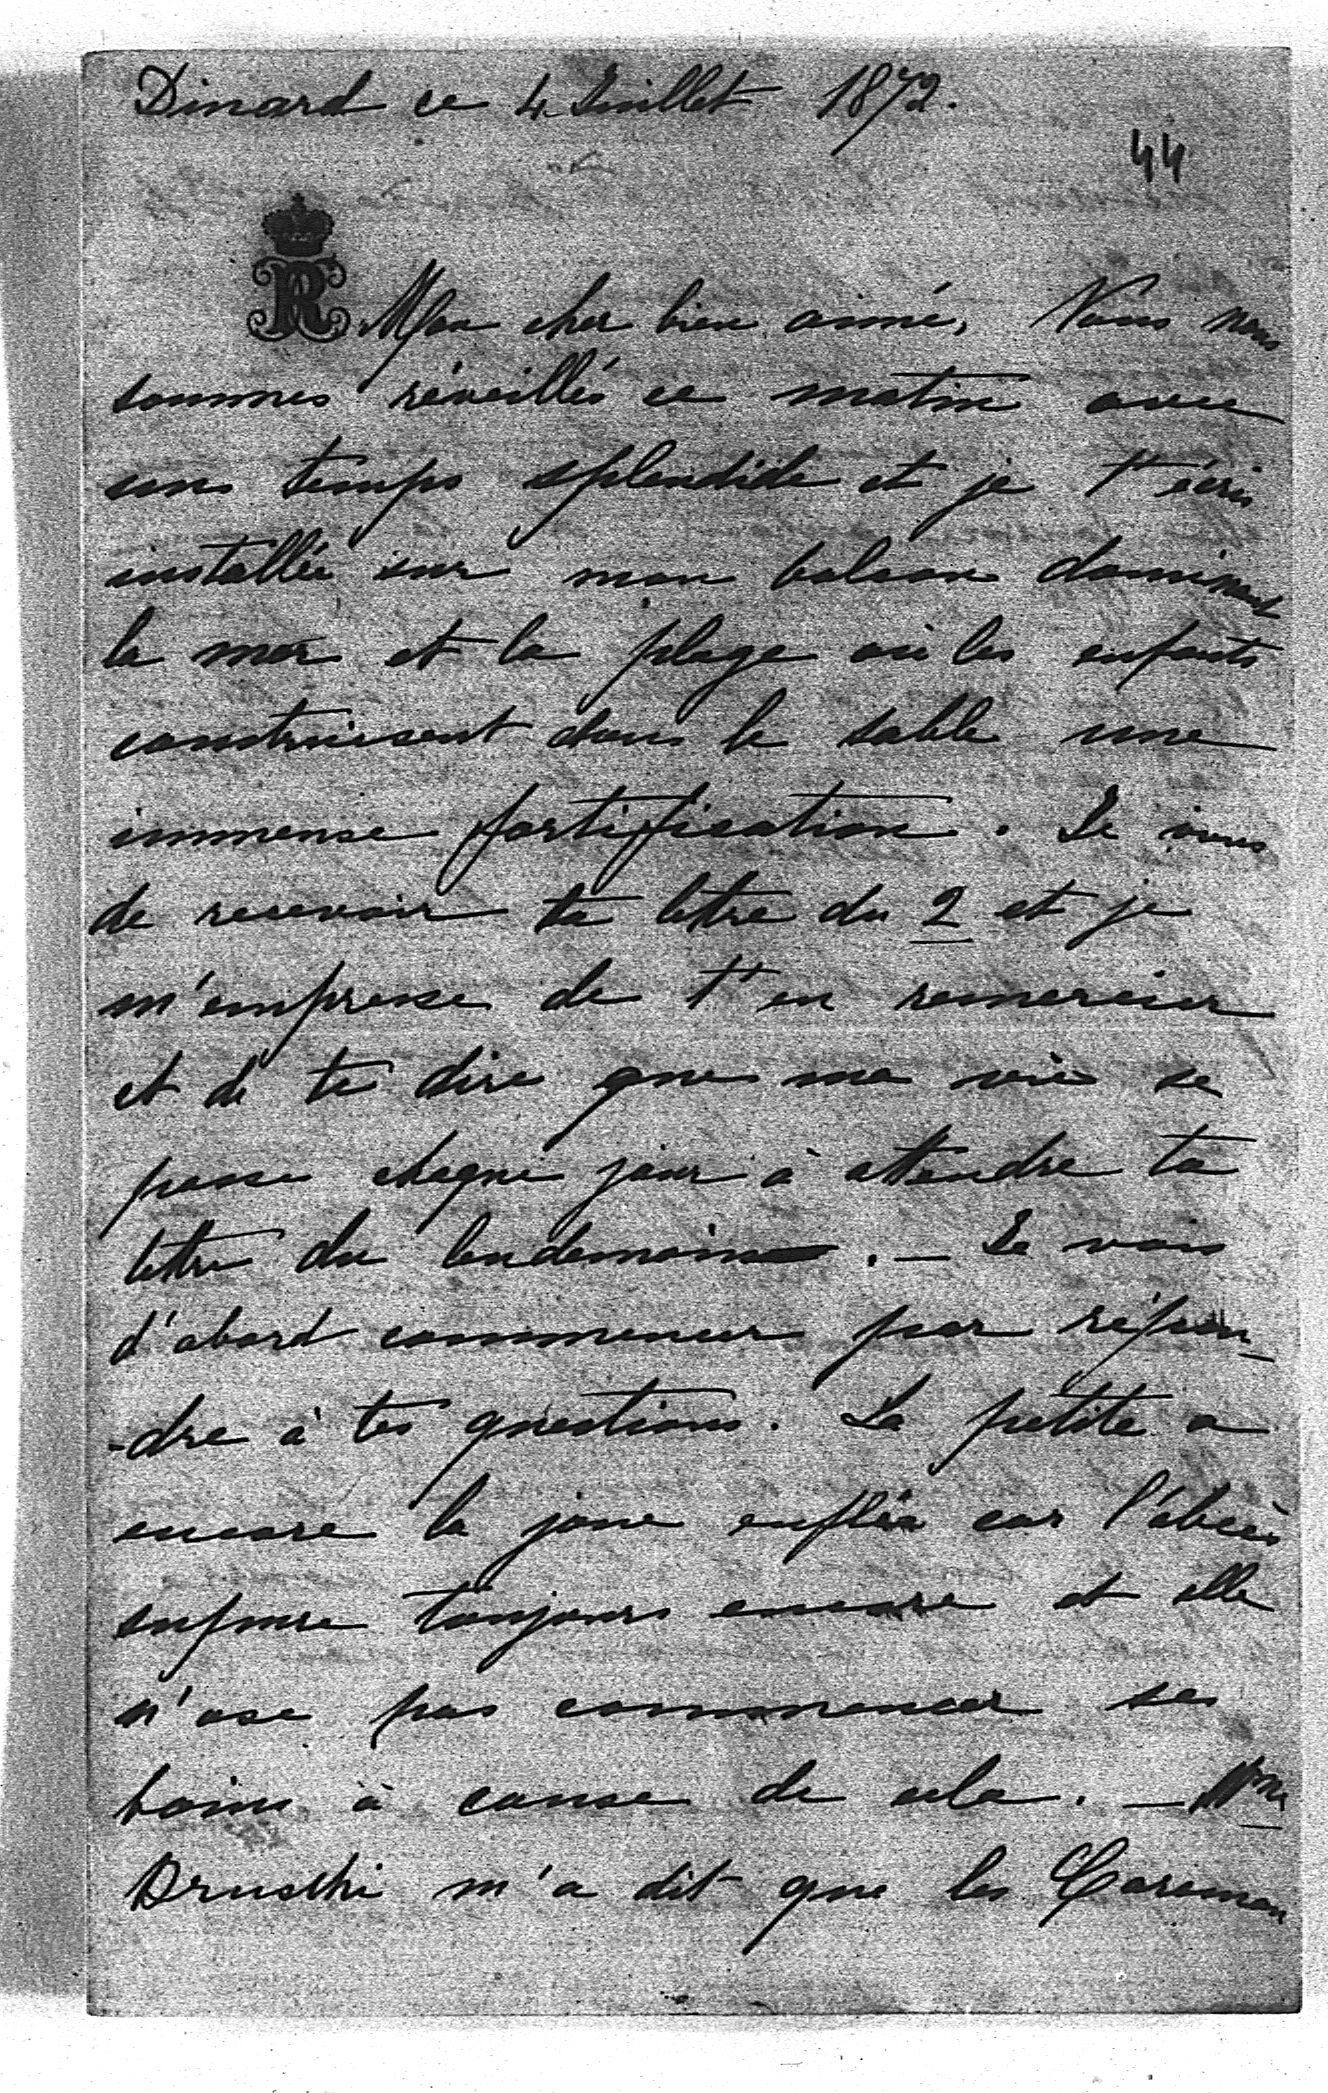 Dinard ce 4 Juillet 1872.
44
R
Mon cher bien aimé, Nous nous
sommes réveillés ce matin avec
un temps splendide et je t'écris
installée sur mon balcon dominant
la mer et la plage où les enfants
construisent dans le sable une
immense fortification. Je viens
de recevoir ta lettre du 2 et je
m'empresse de t'en remercier
et de te dire que ma vie se
passe chaque jour à attendre ta
lettre du lendemain. — Je vais
d'abord commencer par répon-
-dre à tes questions. La petite a
encore la joue enflée car l'abcès
supure toujours encore et elle
n'ose pas commencer ses
bains à cause de cela. — Mme
Druschi m'a dit que les Caraman